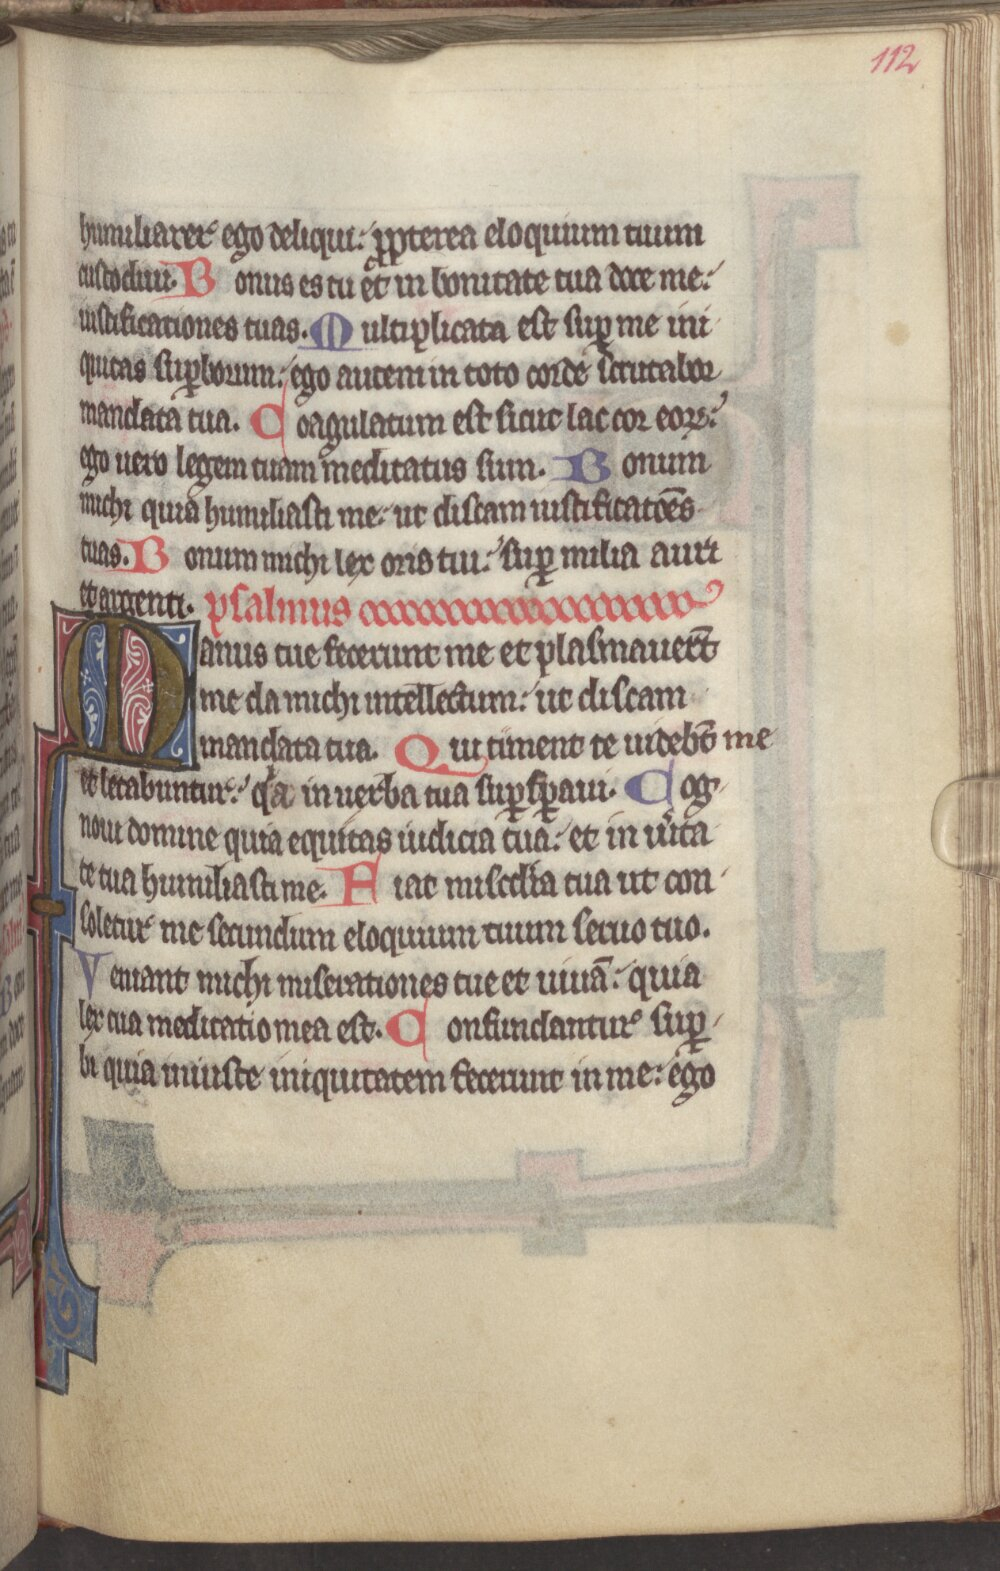 112
humiliarer ego deliqui: ꝓpterea eloquium tuum
custodiui. Bonus es tu et in bonitate tua doce me:
iustificationes tuas. Multiplicata est sup̱ me ini
quitas sup̱borum: ego autem in toto corde scrutabor
mandata tua. Coagulatum est sicut lac cor eoꝝ:
ego uero legem tuam meditatus sum. Bonum
michi quia humiliasti me: ut discam iustificatōes
tuas. Bonum michi lex oris tui: sup̱ milia auri
et argenti. psalmus
Manus tue fecerunt me et plasmauerūt
me da michi intellectum: ut discam
mandata tua. Qui timent te uidebūt me
et letabuntur: qͥa in uerba tua sup̱sp̱aui. Cog
noui domine quia equitas iudicia tua: et in uͥita
te tua humiliasti me. Fiat mis̄cd̄ia tua ut con
soletur me secundum eloquium tuum seruo tuo.
Veniant michi miserationes tue et uiuā: quia
lex tua meditatio mea est. Confundantur sup̱
bi quia iniuste iniquitatem fecerunt in me: ego